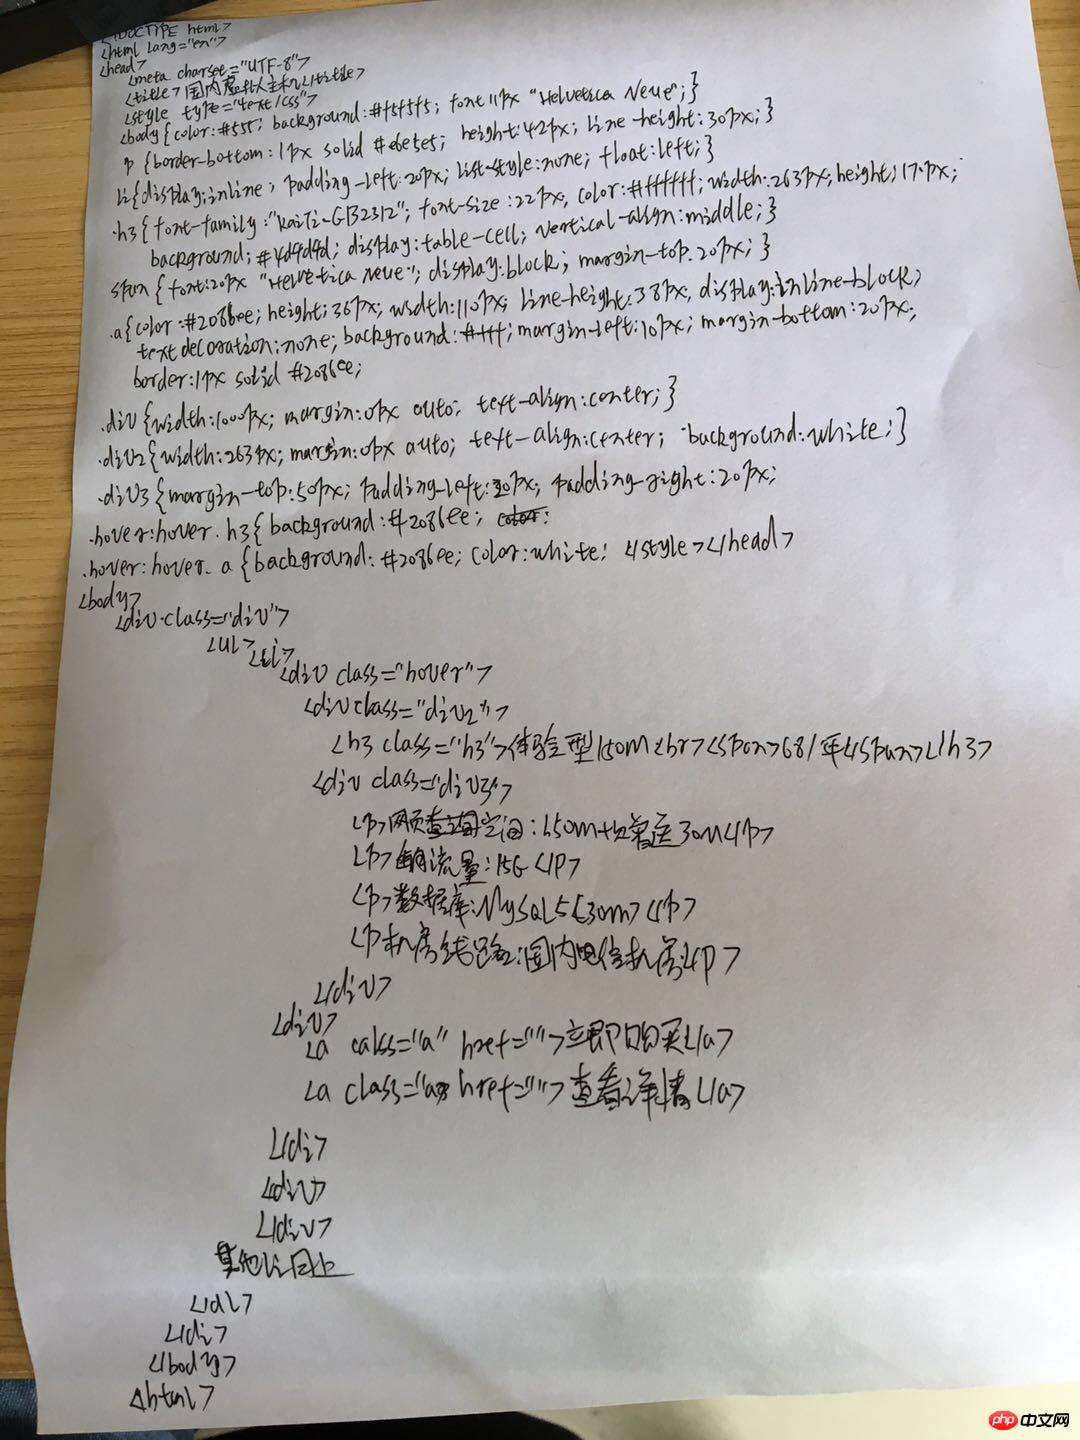 <!DOCTYPE html>
<html lang="en">
<head>
<meta charset="UTF-8">
<title>国内虚拟主机</title>
<style type="text/css">
<body{color:#555; background:#f5f5f5; font 11px "Helvetica Neue";}
p {border-bottom:1px solid #e6e5e5; height:42px; line-height:30px;}
li{display:inline; padding-left:20px; list-style:none; float:left;}
.h3{font-family:"KaiTi-GB2312"; font-size:22px, color:#ffffff; width:263px; height:17px;
background:#4d4d4d; display:table-cell; vertical-align:middle;}
span{font:20px "Helvetica Neue"; display:block; margin-top.20px;}
.a{color:#2086ee; height:36px; width:110px; line-height:38px, display:inline-block;
text decoration:none; background:#fff; margin-left:10px; margin-bottom:20px;
border:1px solid #2086ee;
.div{width:1000px; margin:0px auto; text-align:center;}
.div2{width:263px; margin:0px auto; text-align:center; background:white;}
.div3{margin-top:50px; padding-left:20px; padding-right:20px;
.hover:hover.h3{background:#2086ee;
.hover:hover.a{background:#2086ee; color:white; </style></head>
<body>
<div class="div">
<ul>
<li>
<div class="hover">
<div class="div2">
<h3 class="h3">体验型150m<br><span>68/年</span></h3>
<div class="div3">
<p>网页空间:150m+赠送30m</p>
<p>流量:15G</p>
<p>数据库:MySQL5(30m)</p>
<p机房线路:国内电信机房</p>
</div>
<div>
<a calss="a" href="">立即购买</a>
<a class="a" href="">查看详情</a>
</di>
<div>
</div>
其他li同上
</ul>
</di>
</body>
<html>
php中文网